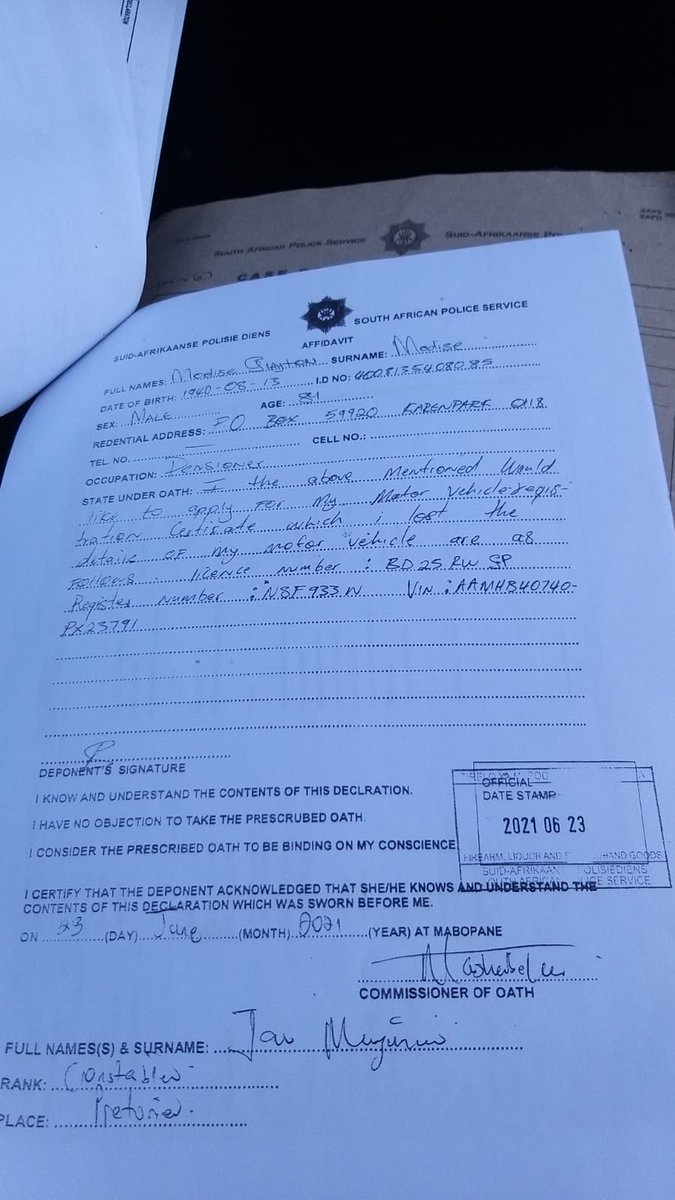 SOUTH AFRICAN POLICE SERVICE
CASE
SUID-AFRIKAANSE POLISIE DIENS
SOUTH AFRICAN POLICE SERVICE
AFFIDAVIT
FULL NAMES: Modise SURNAME: Modise
DATE OF BIRTH: 1940-08-13 I.D NO: 4008135408085
SEX: MALE AGE: 81
REDENTIAL ADDRESS: PO BOX 59920 KARENPARK 0118
TEL. NO. CELL NO.:
OCCUPATION: Pensioner
STATE UNDER OATH: I the above mentioned would
like to apply for my motor vehicle regis-
tration certificate which i lost the
details of my motor vehicle are as
follows. licence number : BD25RW GP
Register number : NSF933W VIN : AAMHB40740-
PX23791
DEPONENT'S SIGNATURE
I KNOW AND UNDERSTAND THE CONTENTS OF THIS DECLRATION.
I HAVE NO OBJECTION TO TAKE THE PRESCRUBED OATH.
I CONSIDER THE PRESCRIBED OATH TO BE BINDING ON MY CONSCIENCE
OFFICIAL
DATE STAMP
2021 06 23
FIREARM, LIQUOR AND HAND GOODS
I CERTIFY THAT THE DEPONENT ACKNOWLEDGED THAT SHE/HE KNOWS AND UNDERSTAND THE
CONTENTS OF THIS DECLARATION WHICH WAS SWORN BEFORE ME.
ON 23 (DAY) June (MONTH) 2021 (YEAR) AT MABOPANE
COMMISSIONER OF OATH
FULL NAMES(S) & SURNAME: Jan
RANK: Constable
PLACE: Pretoria